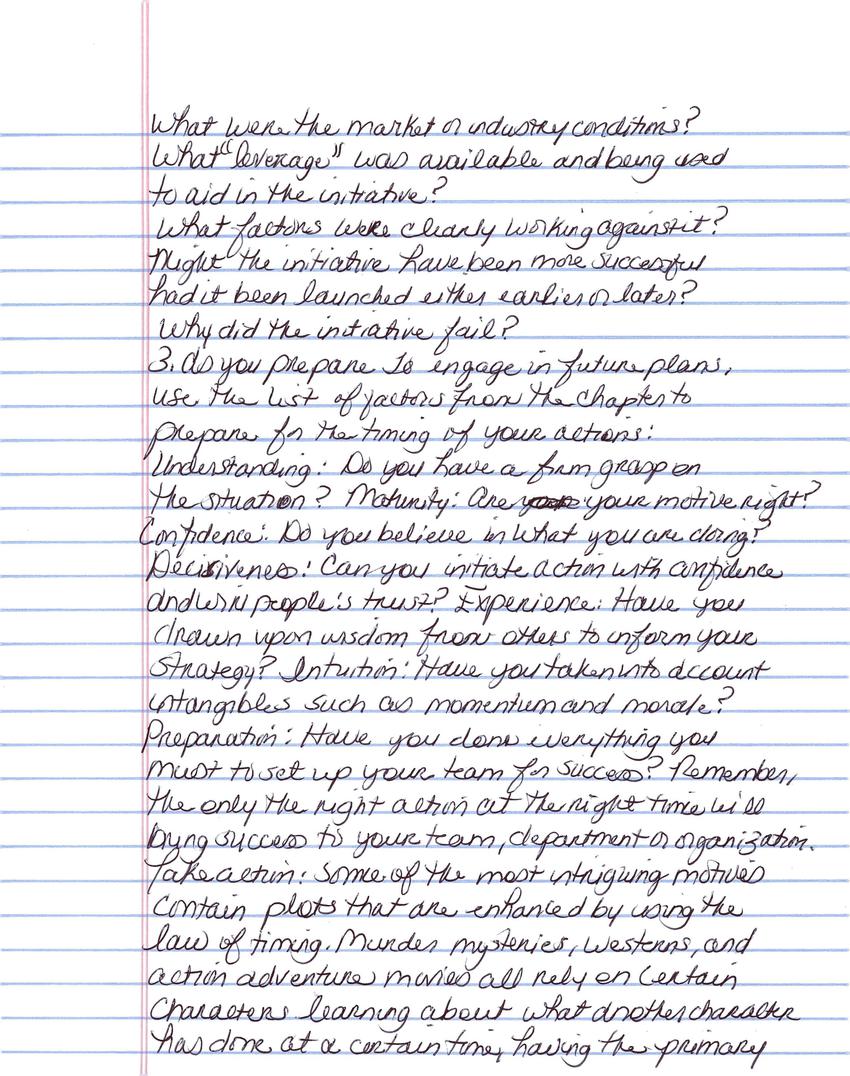 What were the market or industry conditions?
What "leverage" was available and being used
to aid in the initiative?
What factors were clearly working against it?
Might the initiative have been more successful
had it been launched either earlier or later?
Why did the initiative fail?
3. As you prepare to engage in future plans,
use the list of factors from the chapter to
prepare for the timing of your actions:
Understanding: Do you have a firm grasp on
the situation? Maturity: Are your motive right?
Confidence: Do you believe in what you are doing?
Decisiveness: Can you initiate action with confidence
and win people's trust? Experience: Have you
drawn upon wisdom from others to inform your
strategy? Intuition: Have you taken into account
intangibles such as momentum and morale?
Preparation: Have you done everything you
must to set up your team for success? Remember,
the only the right action at the right time will
bring success to your team, department or organization.
Take action: Some of the most intriguing motives
contain plots that are enhanced by using the
law of timing. Murder mysteries, westerns, and
action adventure movies all rely on certain
characters learning about what another character
has done at a certain time, having the primary